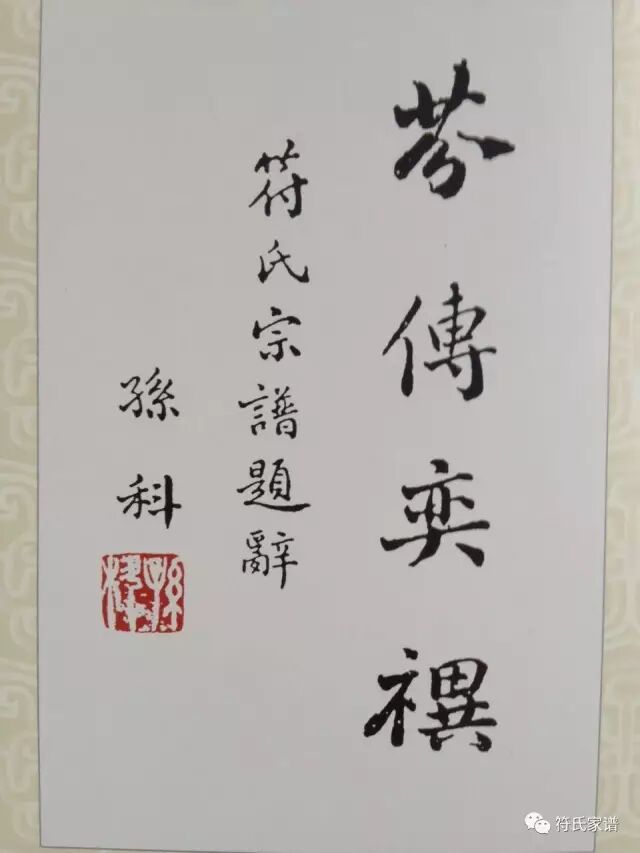 芬傳奕禩
符氏宗譜題辭
孫科
孫科
符氏家谱